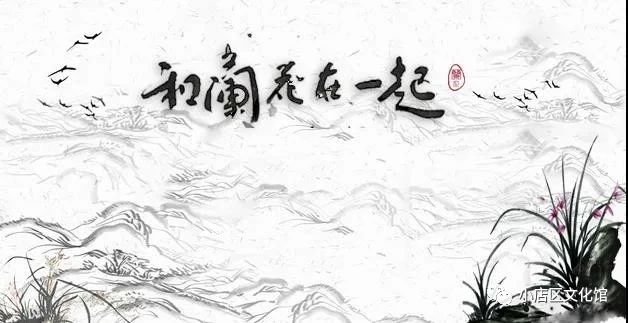 和蘭花在一起
小店区文化馆